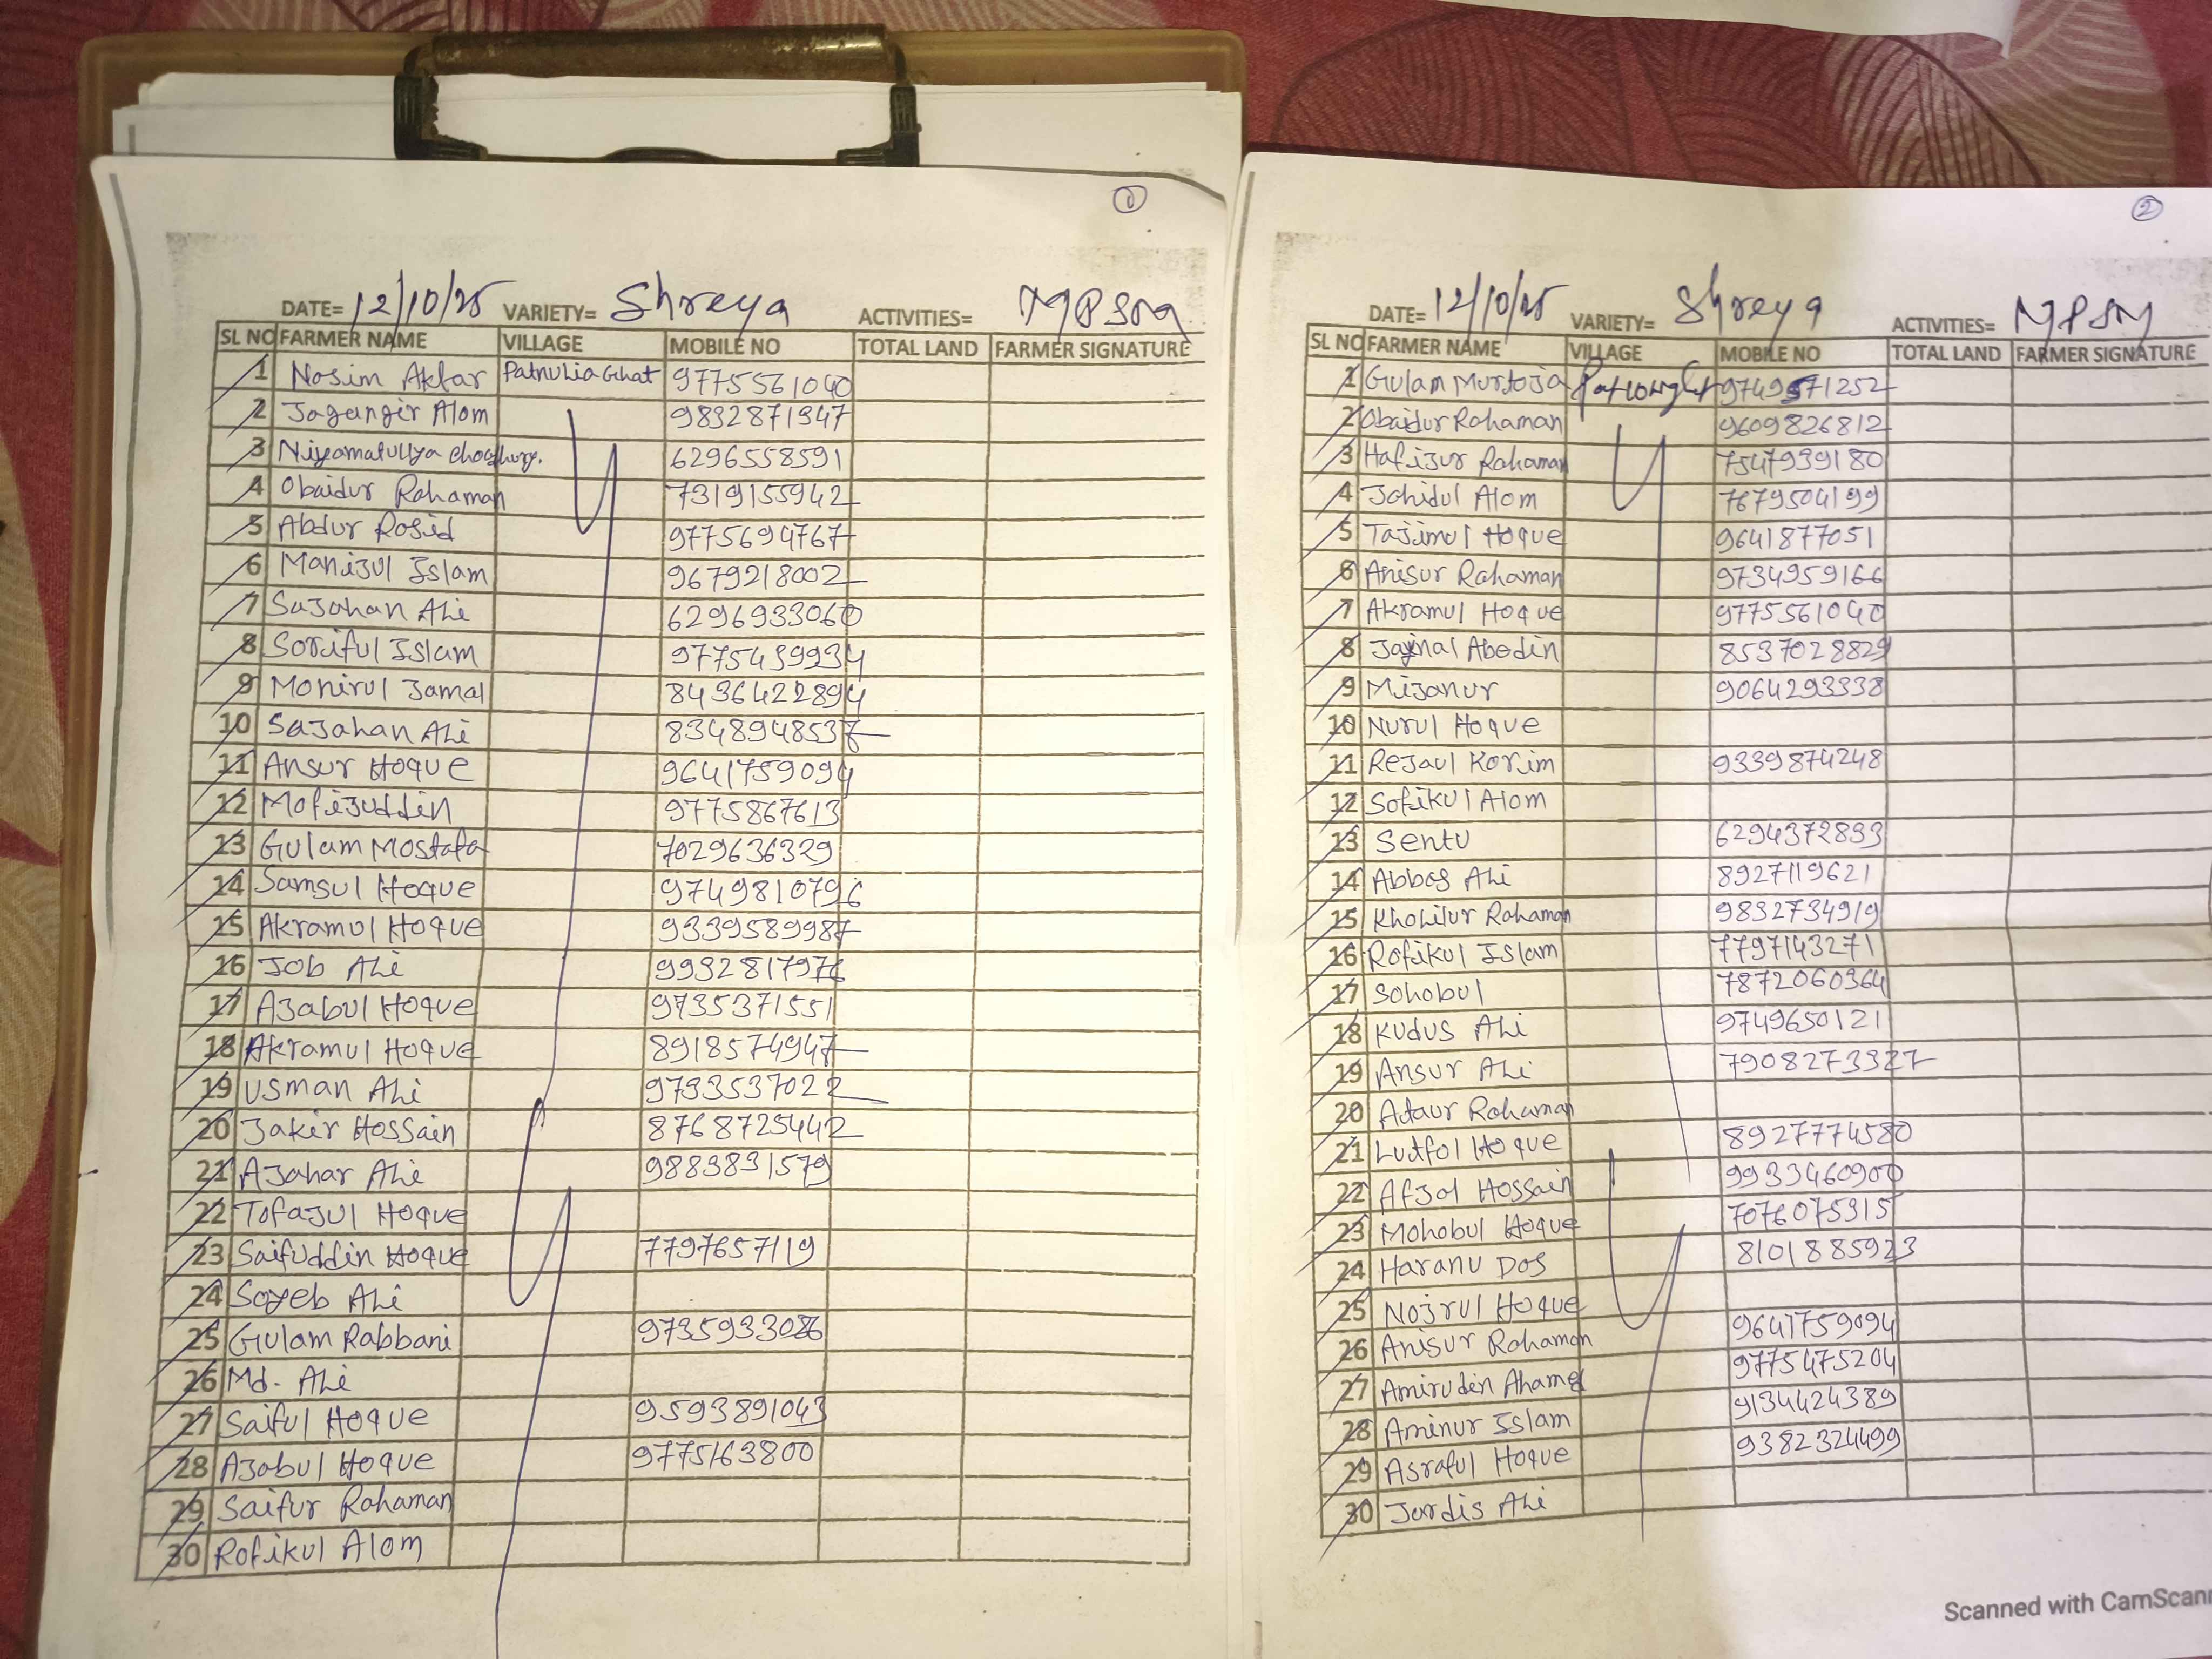 ①
DATE= 12/10/25 VARIETY= Shreya ACTIVITIES= MPSM
SL NO FARMER NAME VILLAGE MOBILE NO TOTAL LAND FARMER SIGNATURE
1 Nosim Aktar Patnulia Ghat 9775561040
2 Jagangir Alom 9832871347
3 Niyamatullya Choudhury. 6296558591
4 Obaidur Rahaman 7319155942
5 Abdur Rosid 9775694767
6 Manijul Islam 9679218002
7 Sajahan Ali 6296933060
8 Soriful Islam 9775439934
9 Monirul Jamal 8436422894
10 Sajahan Ali 8348948537
11 Ansur Hoque 9641759094
12 Mofijuddin 9775867613
13 Gulam Mostafa 7029636329
14 Samsul Hoque 9749810796
15 Akramul Hoque 9339589987
16 Job Ali 9932817976
17 Ajabul Hoque 9735371551
18 Akramul Hoque 8918574947
19 Usman Ali 9733537022
20 Jakir Hossain 8768725442
21 Ajahar Ali 9883831579
22 Tofajul Hoque
23 Saifuddin Hoque 7797657119
24 Soyeb Ali
25 Gulam Rabbani 9735933086
26 Md. Ali
27 Saiful Hoque 9593891043
28 Ajabul Hoque 9775163800
29 Saifur Rahaman
30 Rofikul Alom
②
DATE= 12/10/25 VARIETY= Shreya ACTIVITIES= MPSM
SL NO FARMER NAME VILLAGE MOBILE NO TOTAL LAND FARMER SIGNATURE
1 Gulam Murtoja 9749571252
2 Obaidur Rahaman 9609826812
3 Hafijur Rahaman 7547939180
4 Johidul Alom 7679504199
5 Tajimul Hoque 9641877051
6 Anisur Rahaman 9734959166
7 Akramul Hoque 9775561040
8 Jaynal Abedin 8537028829
9 Mijanur 9064293338
10 Nurul Hoque
11 Rejaul Korim 9339874248
12 Sofikul Alom
13 Sentu 6294372893
14 Abbos Ali 8927119621
15 Kholilur Rahaman 9832734919
16 Rofikul Islam 7797143271
17 Sohobul 7872060364
18 Kudus Ali 9749650121
19 Ansur Ali 7908273327
20 Ataur Rahaman
21 Lutfol Hoque 8927774580
22 Afjal Hossain 9933460900
23 Mohobul Hoque 7076075315
24 Haranu Dos 8101885923
25 Nojrul Hoque
26 Anisur Rahaman 9641759094
27 Amirudin Ahamed 9775475204
28 Aminur Islam 9134424389
29 Asraful Hoque 9382324499
30 Jardis Ali
Scanned with CamScann